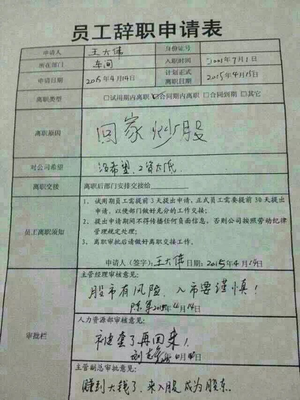 员工辞职申请表
申请人 王大伟 身份证号
所在部门 车间 入职时间 2001年7月1日
申请日期 2015年4月14日 计划正式离职日期 2015年4月15日
离职类型 □试用期内离职 □合同期内离职 □合同到期 □其它
离职原因 回家炒股
对公司希望 没希望,工资太低
离职交接 离职后部门安排交接给
员工离职须知
1、试用期员工需提前3天提出申请,正式员工需要提前30天提出
申请,以使部门做好充分的工作交接;
2、提出申请期间不得传播任何负面信息,否则公司按照劳动纪律
管理规定处理。
3、离职审批后请做好离职交接工作。
申请人(签字):王大伟 日期:2015年4月14日
审批栏
主管经理审核意见:
股市有风险,入市要谨慎!
人力资源部审核意见:
被套了再回来!
主管副总审批意见:
赚到大钱了,来入股成为股东.